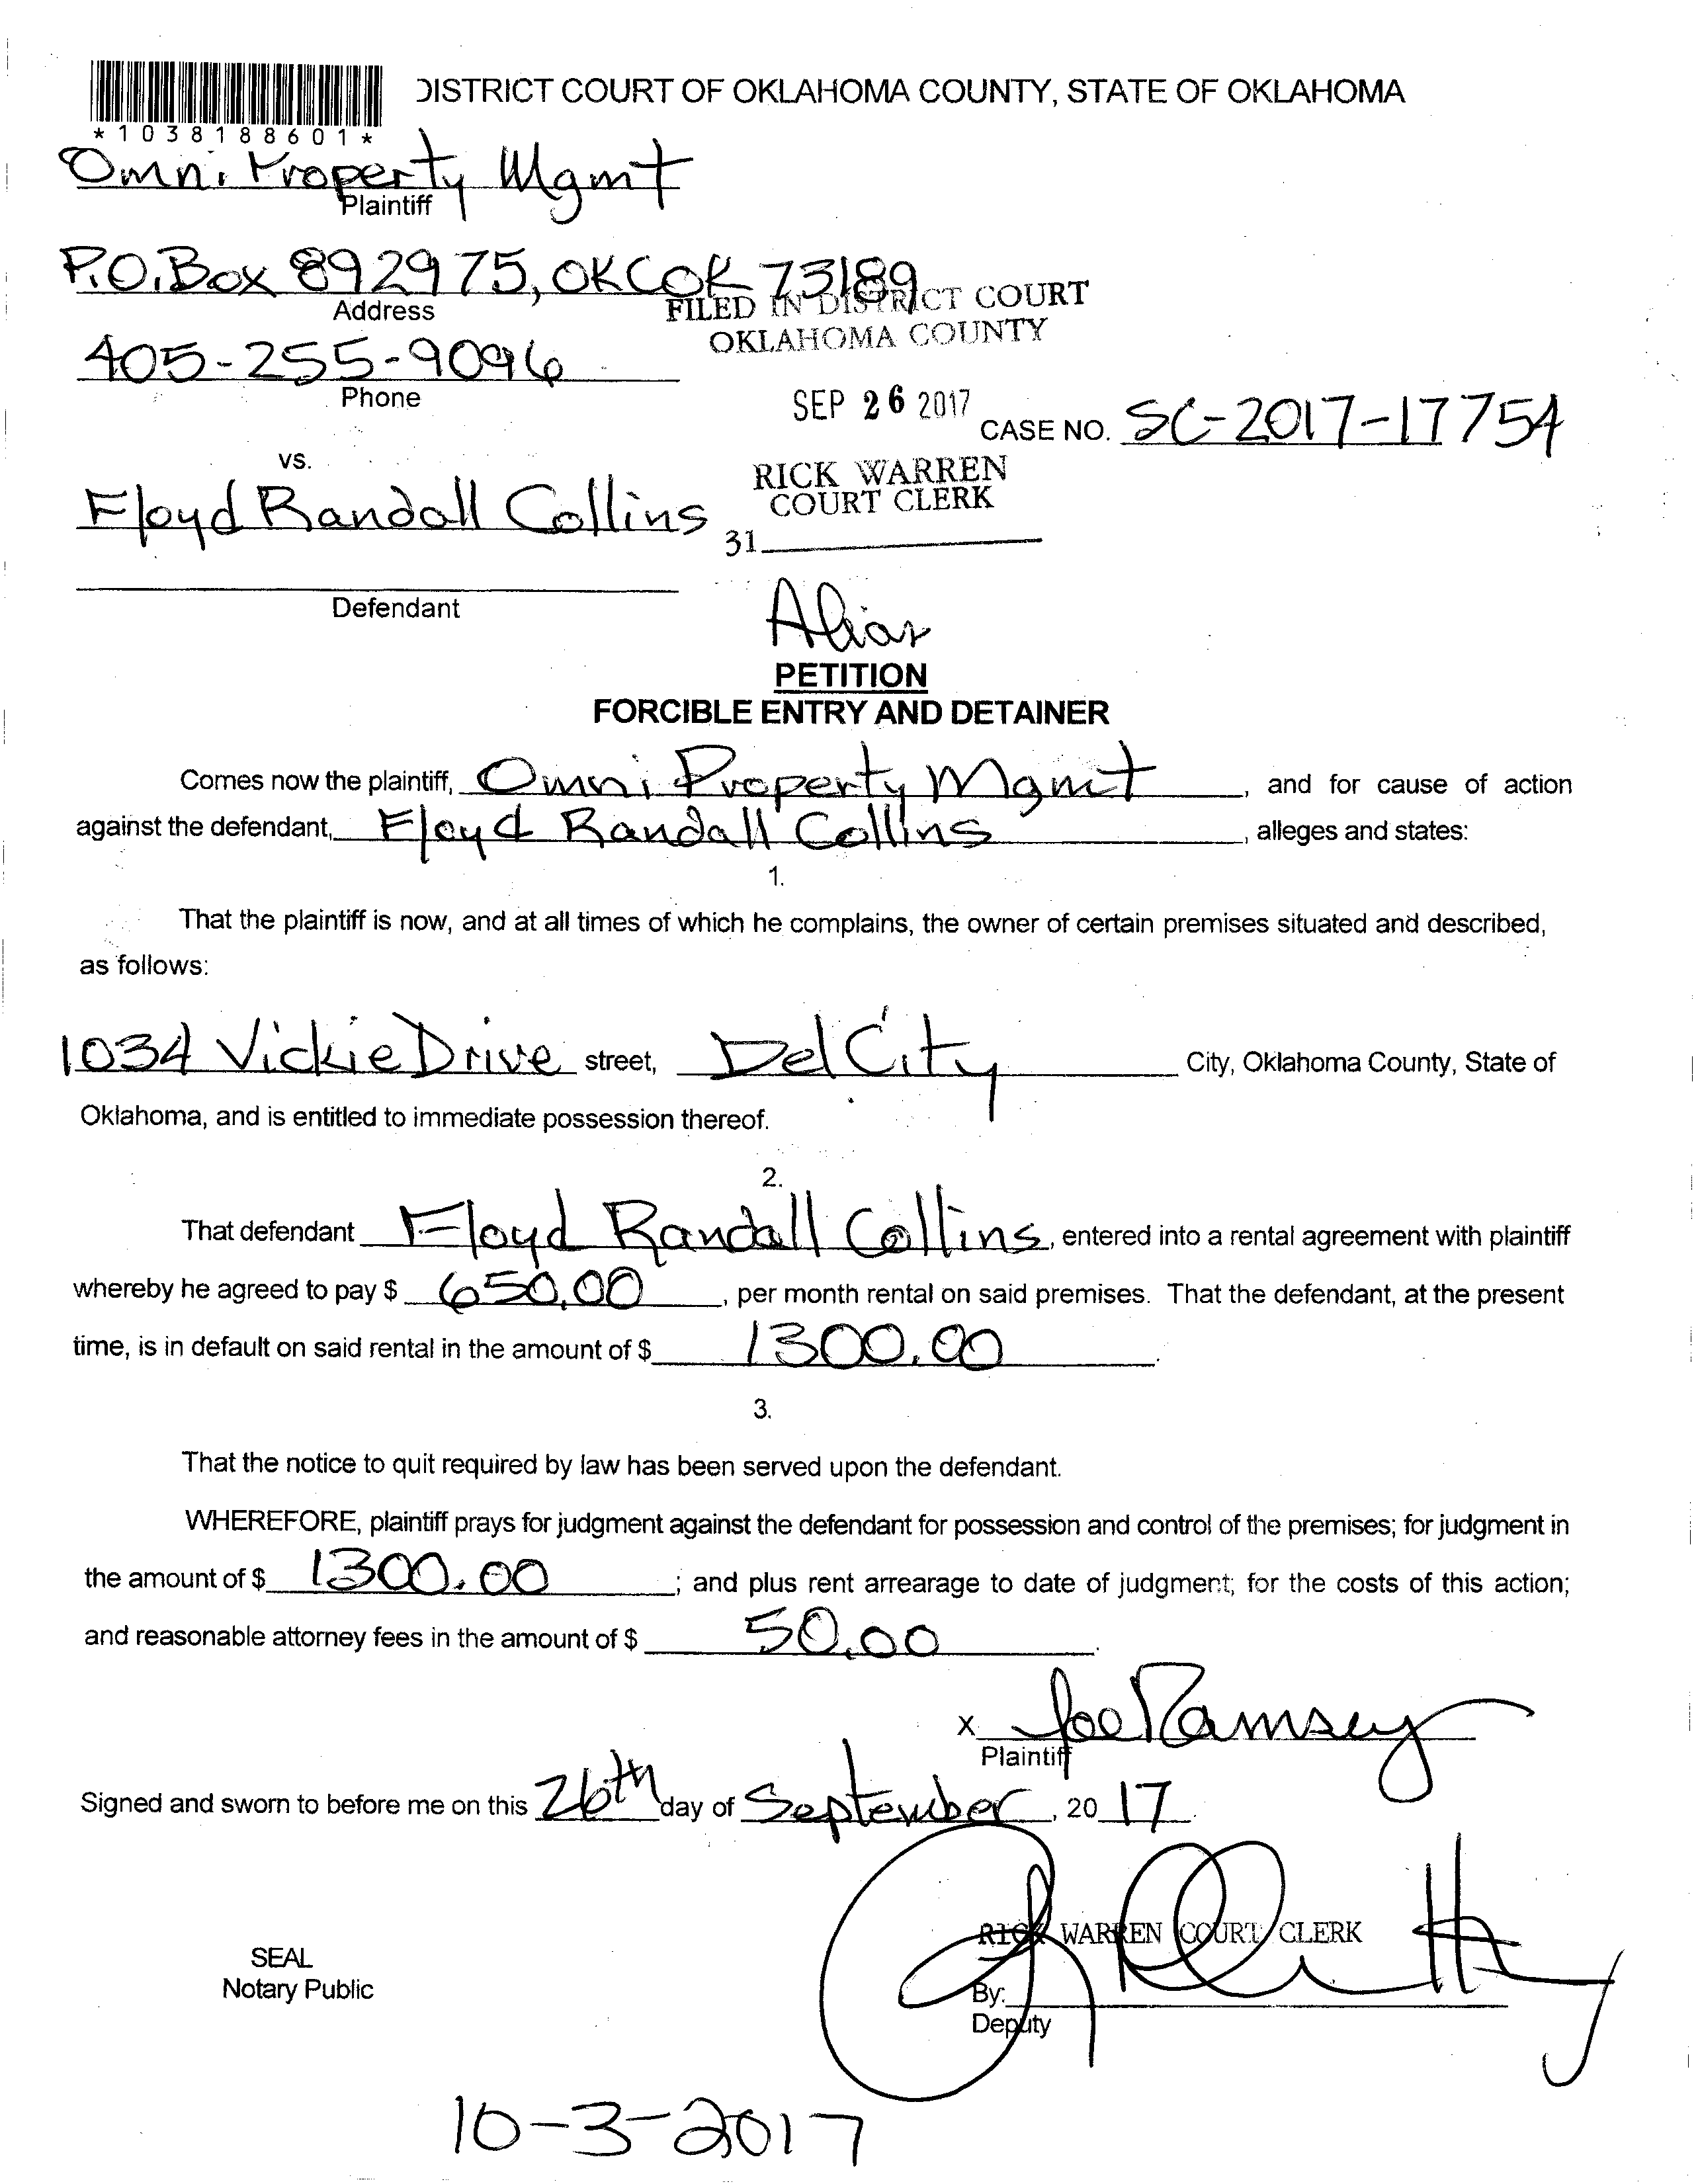 DISTRICT COURT OF OKLAHOMA COUNTY, STATE OF OKLAHOMA
*1038188601*
Omni Property Mgmt
Plaintiff
P.O. Box 892975, OKC OK 73189
Address
FILED IN DISTRICT COURT
OKLAHOMA COUNTY
405-255-9096
Phone
SEP 26 2017
CASE NO. SC-2017-17754
vs.
RICK WARREN
COURT CLERK
Floyd Randall Collins
31
Defendant
Alias
PETITION
FORCIBLE ENTRY AND DETAINER
Comes now the plaintiff, Omni Property Mgmt, and for cause of action
against the defendant, Floyd Randall Collins, alleges and states:
1.
That the plaintiff is now, and at all times of which he complains, the owner of certain premises situated and described,
as follows:
1034 Vickie Drive street, Del City City, Oklahoma County, State of
Oklahoma, and is entitled to immediate possession thereof.
2.
That defendant Floyd Randall Collins, entered into a rental agreement with plaintiff
whereby he agreed to pay $ 650.00, per month rental on said premises. That the defendant, at the present
time, is in default on said rental in the amount of $ 1300.00.
3.
That the notice to quit required by law has been served upon the defendant.
WHEREFORE, plaintiff prays for judgment against the defendant for possession and control of the premises; for judgment in
the amount of $ 1300.00; and plus rent arrearage to date of judgment; for the costs of this action;
and reasonable attorney fees in the amount of $ 50.00.
X Joe Ramsey
Plaintiff
Signed and sworn to before me on this 26th day of September, 20 17.
RICK WARREN COURT CLERK
SEAL
Notary Public
By:
Deputy
10-3-2017